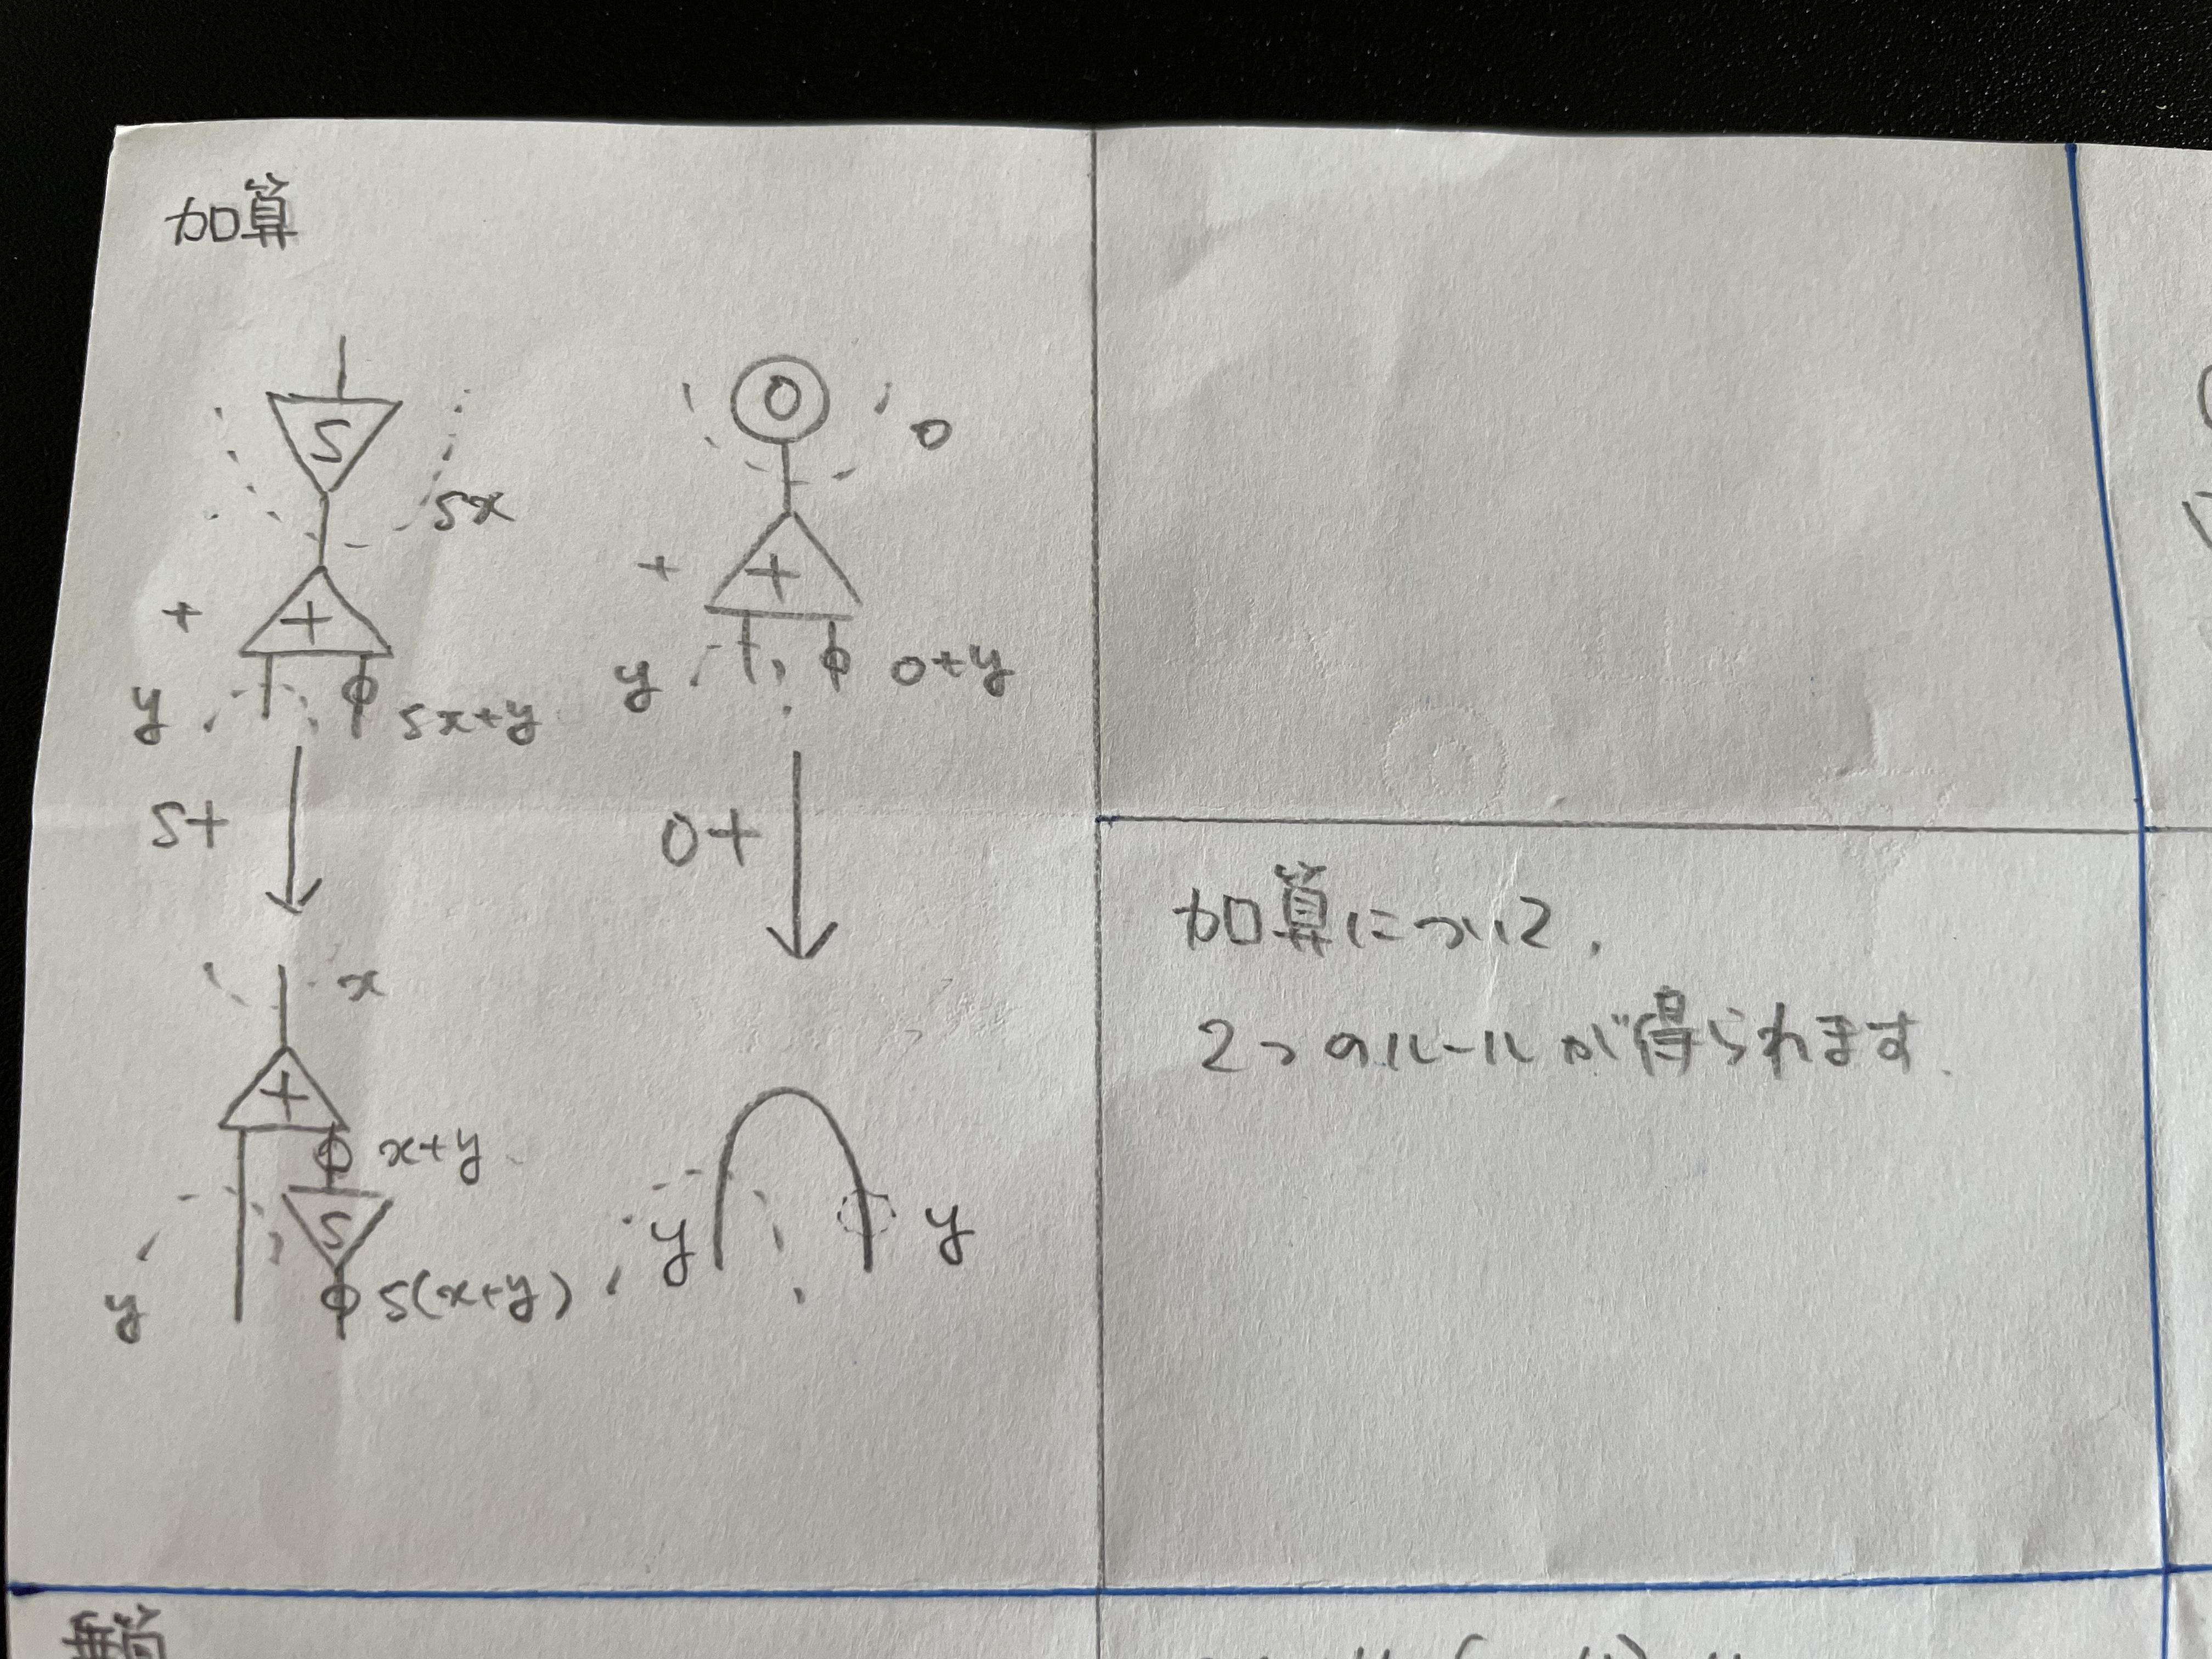 加算
S
sx
+
+
y
sx+y
s+
x
+
x+y
S
y
s(x+y)
0
0
+
+
y
0+y
0+
y
y
加算について、
2つのルールが得られます.